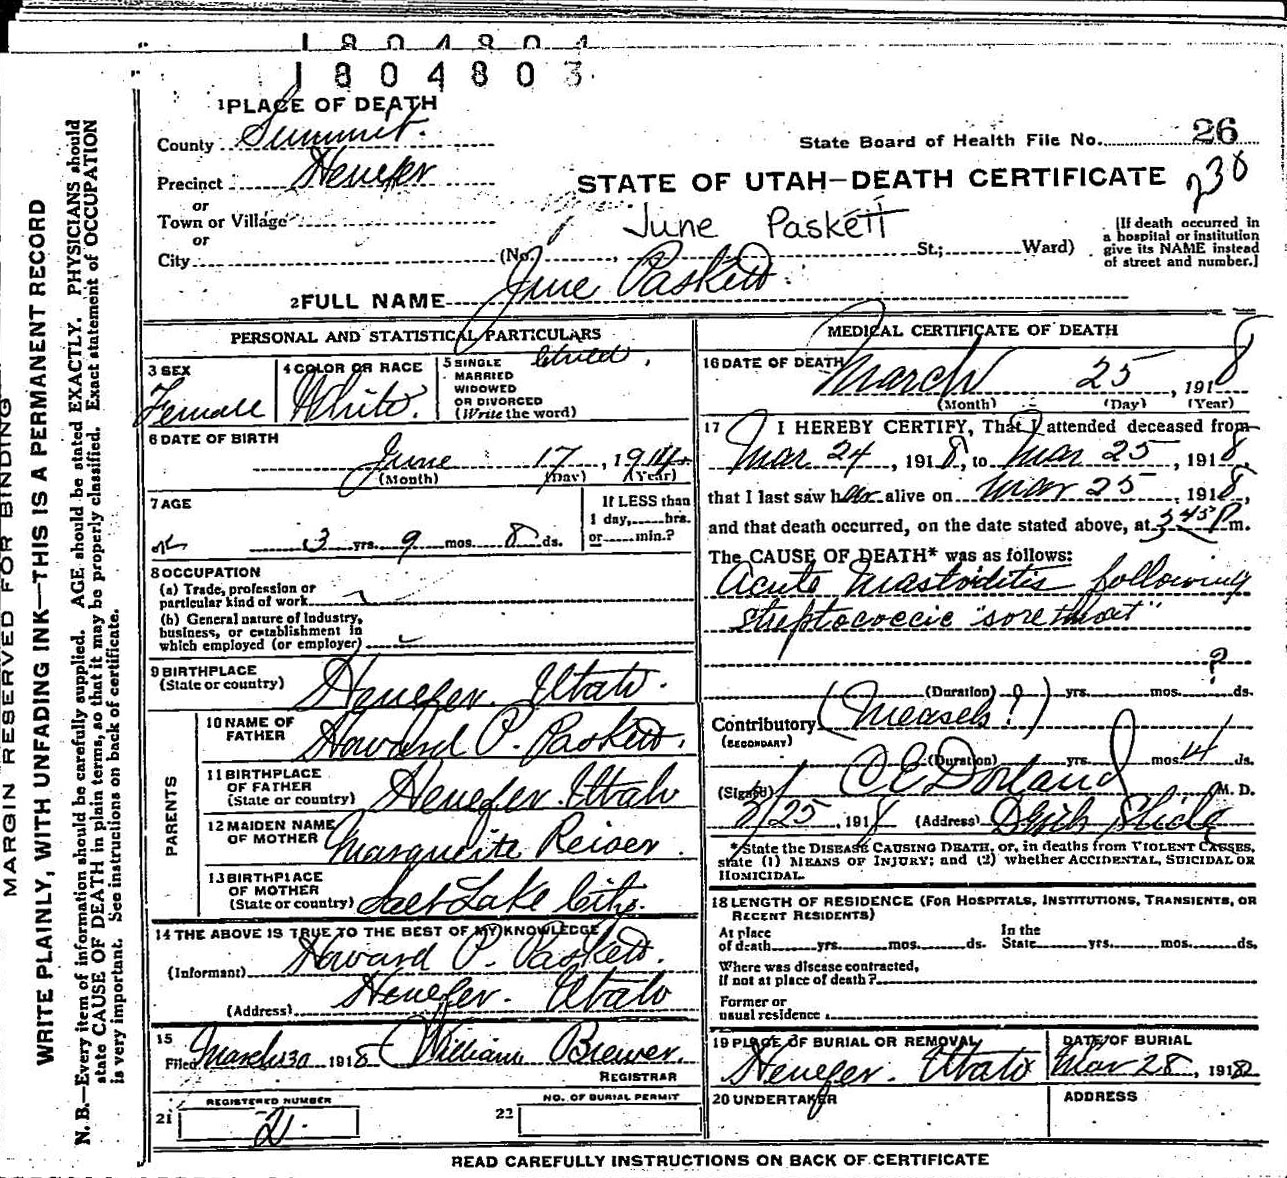 1804804
1804803
1 PLACE OF DEATH
County Summit.
State Board of Health File No. 26
Precinct Henefer
238
STATE OF UTAH—DEATH CERTIFICATE
or
Town or Village
June Paskett
or
City (No. , St.; Ward)
[If death occurred in
a hospital or institution
give its NAME instead
of street and number.]
2 FULL NAME June Paskett.
PERSONAL AND STATISTICAL PARTICULARS
3 SEX
Female
4 COLOR OR RACE
White.
5 SINGLE
MARRIED
WIDOWED
OR DIVORCED
(Write the word)
Child.
6 DATE OF BIRTH
June 17, 1914
(Month) (Day) (Year)
7 AGE
3 yrs. 9 mos. 8 ds.
If LESS than
1 day, hrs.
or min.?
8 OCCUPATION
(a) Trade, profession or
particular kind of work
(b) General nature of Industry,
business, or establishment in
which employed (or employer)
9 BIRTHPLACE
(State or country) Henefer. Utah.
PARENTS
10 NAME OF
FATHER Howard P. Paskett.
11 BIRTHPLACE
OF FATHER
(State or country) Henefer. Utah
12 MAIDEN NAME
OF MOTHER Marguerite Reiser.
13 BIRTHPLACE
OF MOTHER
(State or country) Salt Lake City.
14 THE ABOVE IS TRUE TO THE BEST OF MY KNOWLEDGE
(Informant) Howard P. Paskett.
(Address) Henefer. Utah
15
Filed March 30 1918 William Brewer.
REGISTRAR
21 REGISTERED NUMBER
2.
22 NO. OF BURIAL PERMIT
MEDICAL CERTIFICATE OF DEATH
16 DATE OF DEATH
March 25, 1918
(Month) (Day) (Year)
17 I HEREBY CERTIFY, That I attended deceased from
Mar 24, 1918, to Mar 25, 1918,
that I last saw her alive on Mar 25, 1918,
and that death occurred, on the date stated above, at 3 45 P m.
The CAUSE OF DEATH* was as follows:
Acute Mastoiditis following
streptococcic "sore throat"
?
(Duration) ? yrs. mos. ds.
Contributory (Measels?)
(SECONDARY)
(Duration) yrs. mos. 14 ds.
(Signed) C E Dorland M. D.
3/25, 1918 (Address) Devils Slide
*State the DISEASE CAUSING DEATH, or, in deaths from VIOLENT CAUSES,
state (1) MEANS OF INJURY; and (2) whether ACCIDENTAL, SUICIDAL OR
HOMICIDAL.
18 LENGTH OF RESIDENCE (FOR HOSPITALS, INSTITUTIONS, TRANSIENTS, OR
RECENT RESIDENTS)
At place
of death yrs. mos. ds.
In the
State yrs. mos. ds.
Where was disease contracted,
if not at place of death?
Former or
usual residence
19 PLACE OF BURIAL OR REMOVAL
Henefer. Utah
DATE OF BURIAL
Mar 28, 1918
20 UNDERTAKER
ADDRESS
READ CAREFULLY INSTRUCTIONS ON BACK OF CERTIFICATE
MARGIN RESERVED FOR BINDING
WRITE PLAINLY, WITH UNFADING INK—THIS IS A PERMANENT RECORD
N. B.—Every item of information should be carefully supplied. AGE should be stated EXACTLY. PHYSICIANS should
state CAUSE OF DEATH in plain terms, so that it may be properly classified. Exact statement of OCCUPATION
is very important. See instructions on back of certificate.